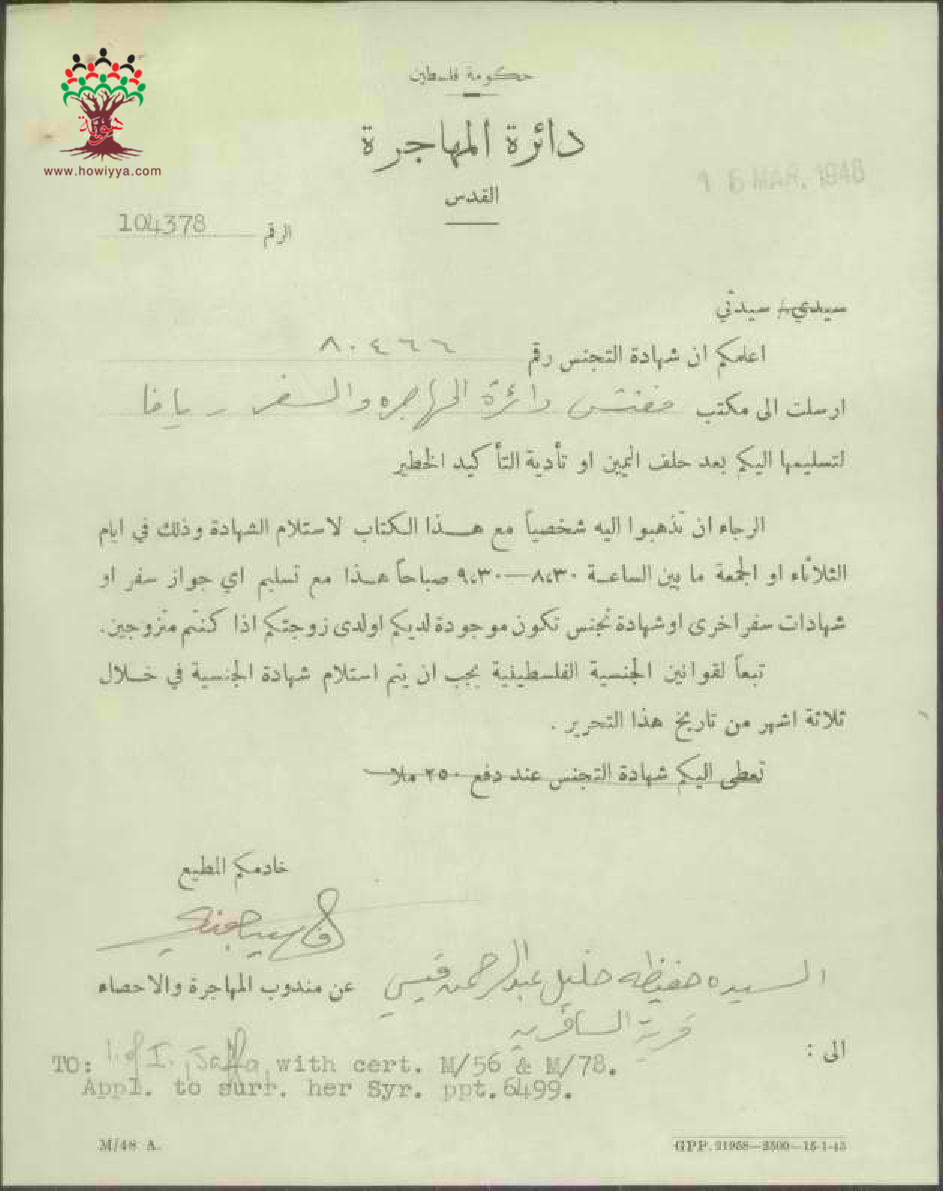 هوية
www.howiyya.com
حكومة فلسطين
دائرة المهاجرة
القدس
1 6 MAR. 1948
الرقم 104378
سيدي / سيدتي
اعلمكم ان شهادة التجنس رقم ٨٠٤٦٦
ارسلت الى مكتب مفتش دائرة المهاجره والسفر - يافا
لتسليمها اليكم بعد حلف اليمين او تأدية التأكيد الخطير
الرجاء ان تذهبوا اليه شخصياً مع هـذا الكتاب لاستلام الشهادة وذلك في ايام
الثلاثاء او الجمعة ما بين الساعـة ٨،٣٠—٩،٣٠ صباحاً هـذا مع تسليم اي جواز سفر او
شهادات سفر اخرى او شهادة تجنس تكون موجودة لديكم او لدى زوجتكم اذا كنتم متزوجين.
تبعاً لقوانين الجنسية الفلسطينية يجب ان يتم استلام شهادة الجنسية في خـلال
ثلاثة اشهر من تاريخ هذا التحرير .
تعطى اليكم شهادة التجنس عند دفع ٢٥٠ ملا
خادمكم المطيع
عن مندوب المهاجرة والاحصاء
السيده حفيظه خليل عبد الرحمن قيسي
قرية السافريه
الى :
TO: I. of I. Jaffa, with cert. M/56 & M/78.
Appl. to surr. her Syr. ppt. 6499.
M/48 A.
GPP. 21958—2500—15-1-45